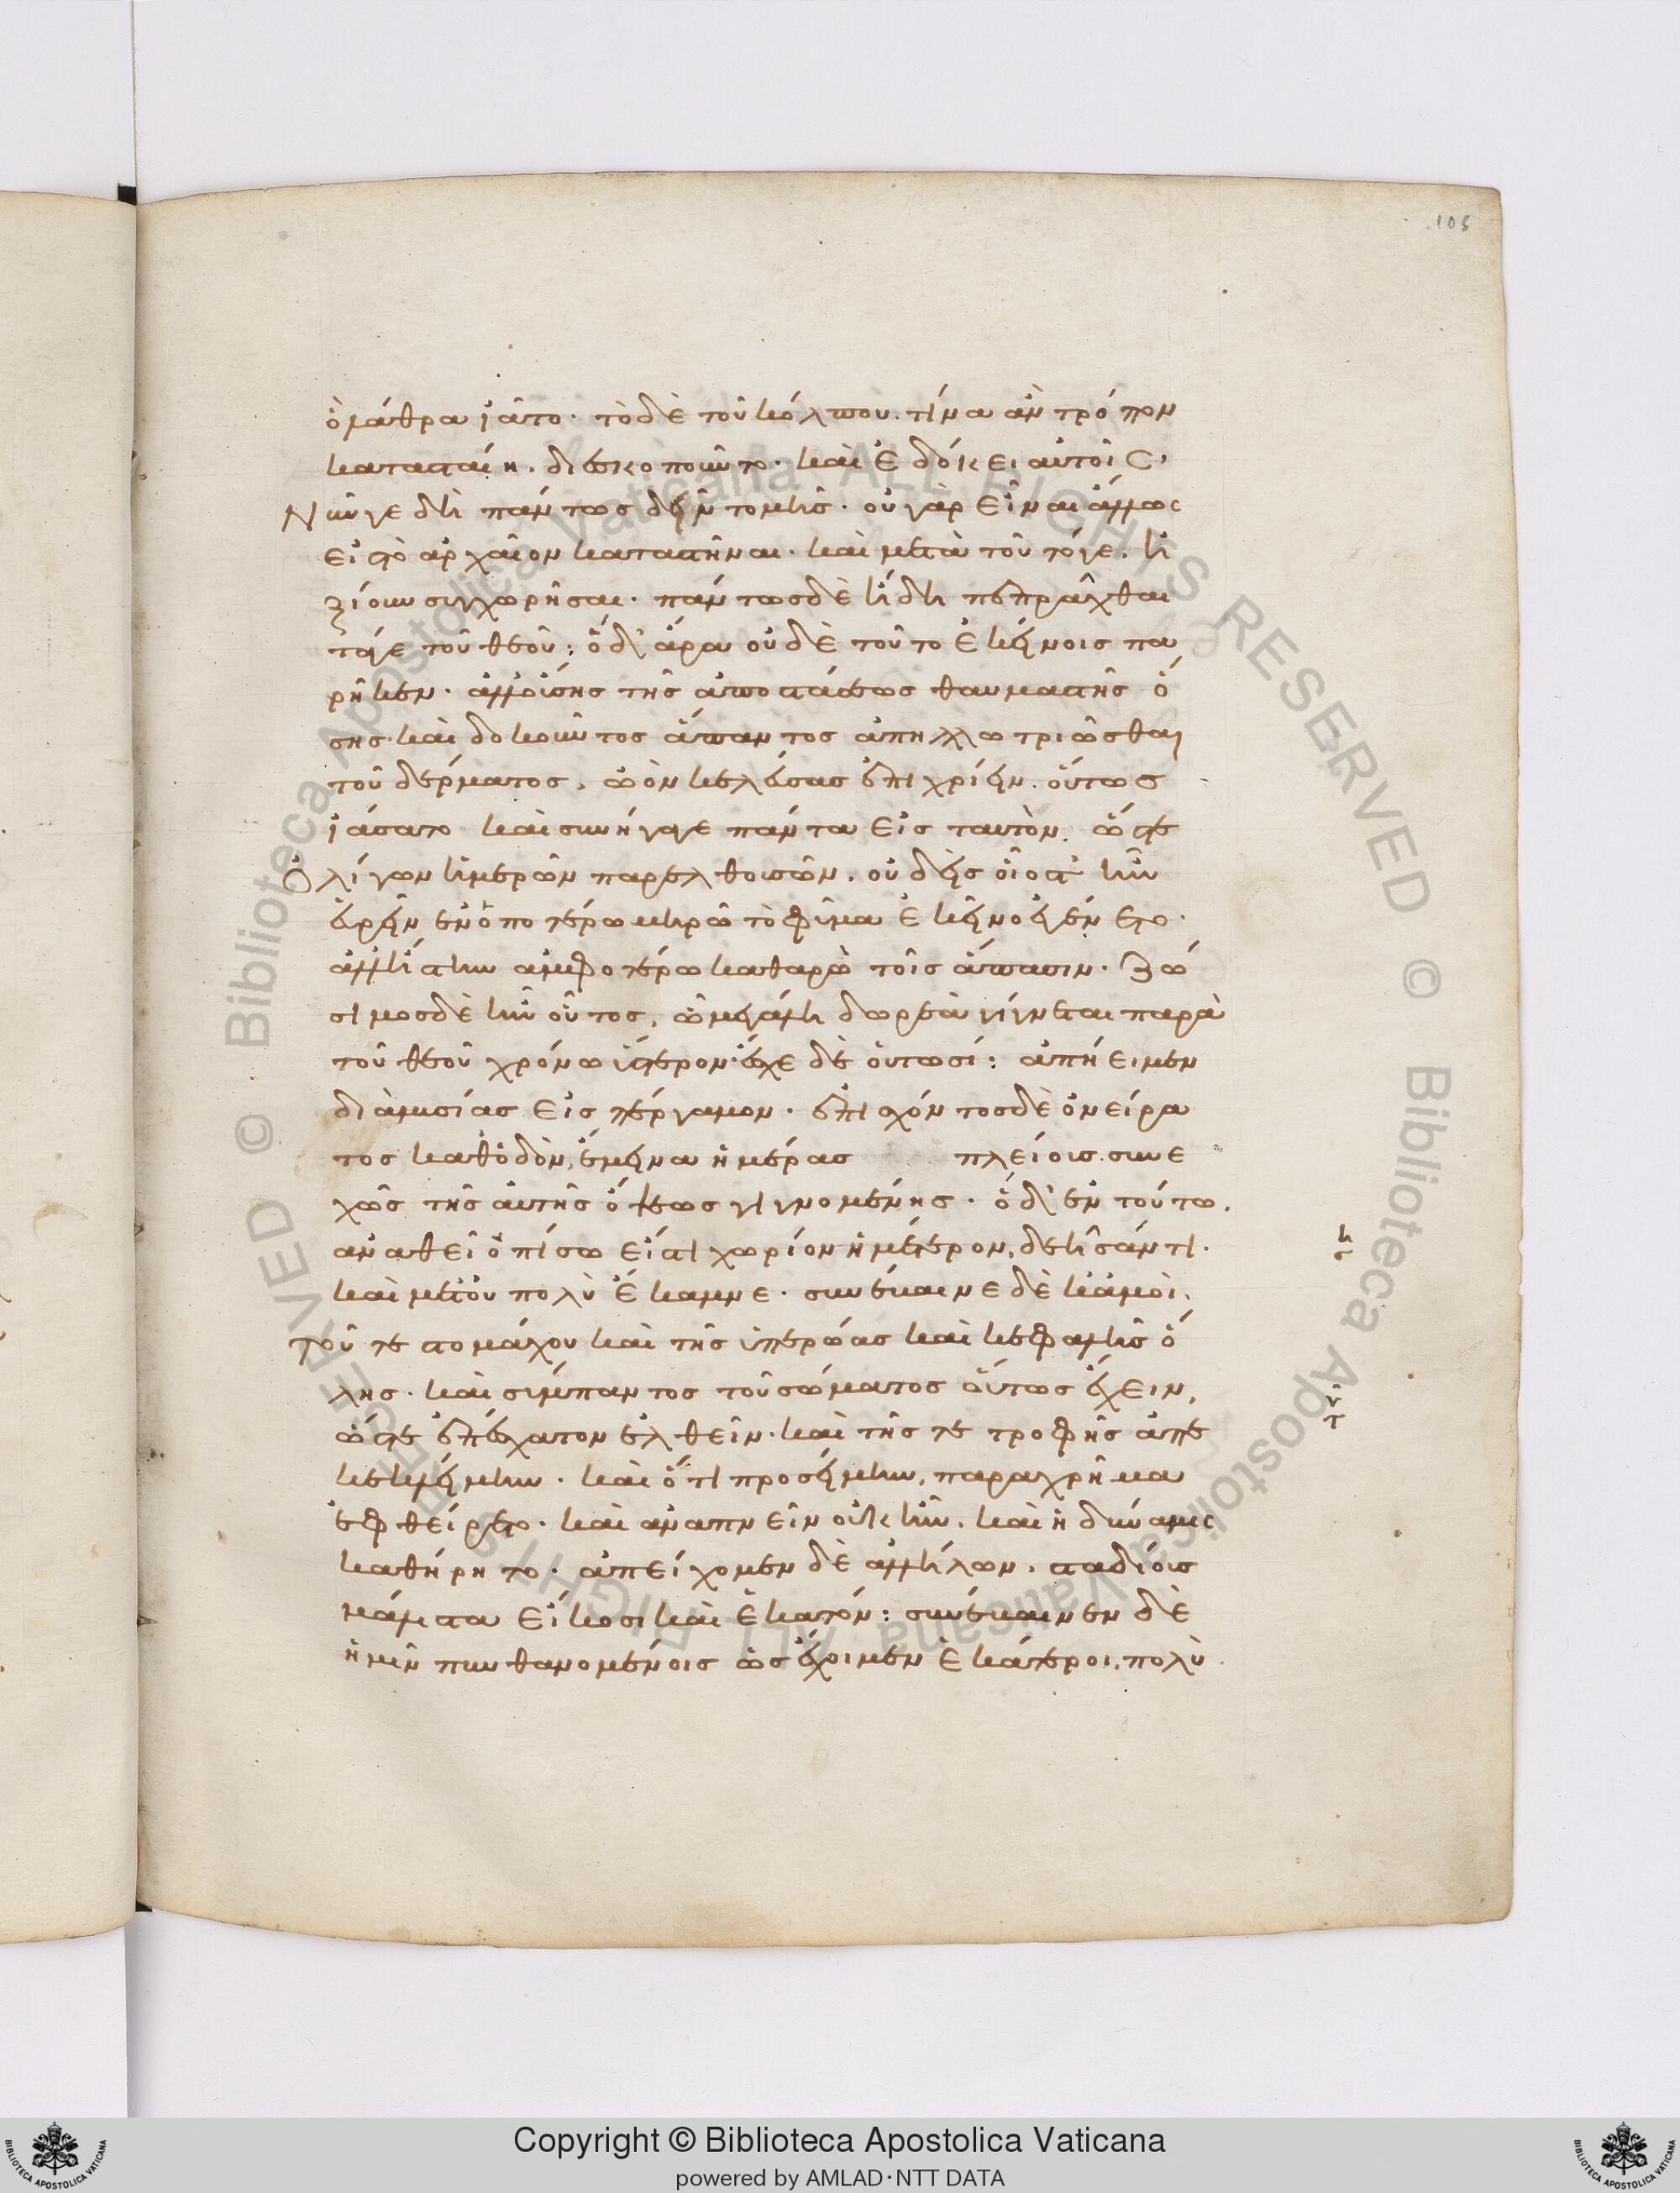 ὀράθρα ἰᾶτο· τὸ δὲ τοῦ κόλπου. τίνα ἂν τρόπον
κατασταίη. διεσκοποῦντο· καὶ ἐδόκει αὐτοῖς·
Νῦν γε δὴ πάντως δεῖν τομῆς· οὐ γὰρ εἶναι ἄλλως
εἰς τὸ ἀρχαῖον καταστῆναι· καὶ μετὰ τοῦτό γε. ἠ
ξίουν συγχωρῆσαι· πάντως δὲ ἤδη πεπρᾶχθαι
τάγε τοῦ θεοῦ: ὁ δ' ἄρα οὐδὲ τοῦτο ἐκείνοις πα
ρῆκεν· ἀλλ' οὔσης τῆς ἀποστάσεως θαυμαστῆς ὅ
σης· καὶ δοκοῦντος ἅπαντος ἀπηλλωτριῶσθαι
τοῦ δέρματος, ὠὸν κελεύσας ἐπιχρίειν. οὕτως
ἰάσατο καὶ συνήγαγε πάντα εἰς ταυτὸν. ὥστε
Ὀλίγων ἡμερῶν παρελθουσῶν. οὐδεὶς οἷος τ' ἦν
εὑρεῖν ἐν ὁποτέρω μηρῶ τὸ φῦμα ἐκεῖνο ἐγένετο·
ἀλλ' ἤστην ἀμφοτέρω καθαρὼ τοῖς ἅπασιν· Ζώ
σιμος δὲ ἦν οὗτος, ὧ μεγάλη δωρεὰ γίγνεται παρὰ
τοῦ θεοῦ χρόνω ὕστερον· ἔχε δὲ οὑτωσί: ἀπήειμεν
διὰ μυσίας εἰς πέργαμον· ἐπισχόντος δὲ ὀνείρα
τος καθ' ὁδὸν, ἔμεινα ἡμέρας πλείους συνε
χῶς τῆς αὐτῆς ὄψεως γιγνομένης· ὁ δ' ἐν τούτω.
ἀναθεῖ ὀπίσω εἴς τι χωρίον ἡμέτερον, δεῆσάν τι·
καὶ μετ' οὐ πολὺ ἔκαμνε· συνέβαινε δὲ κἀμοὶ,
Τοῦ τε στομάχου καὶ τῆς ὑπερώας καὶ κεφαλῆς ὅ
λης· καὶ σύμπαντος τοῦ σώματος οὕτως ἔχειν,
ὥστε ἐπ' ἔσχατον ἐλθεῖν· καὶ τῆς τε τροφῆς ἀπε
κεκλείμην· καὶ ὅ τι προσείμην, παραχρῆμα
ἐφθείρετο· καὶ ἀναπνεῖν οὐκ ἦν. καὶ ἡ δύναμις
καθήρητο· ἀπείχομεν δὲ ἀλλήλων. σταδίους
μάλιστα εἴκοσι καὶ ἑκατόν: συνέβαινεν δὲ
ἡμῖν πυνθανομένοις ὡς ἔχοιμεν ἑκάτεροι, πολὺ